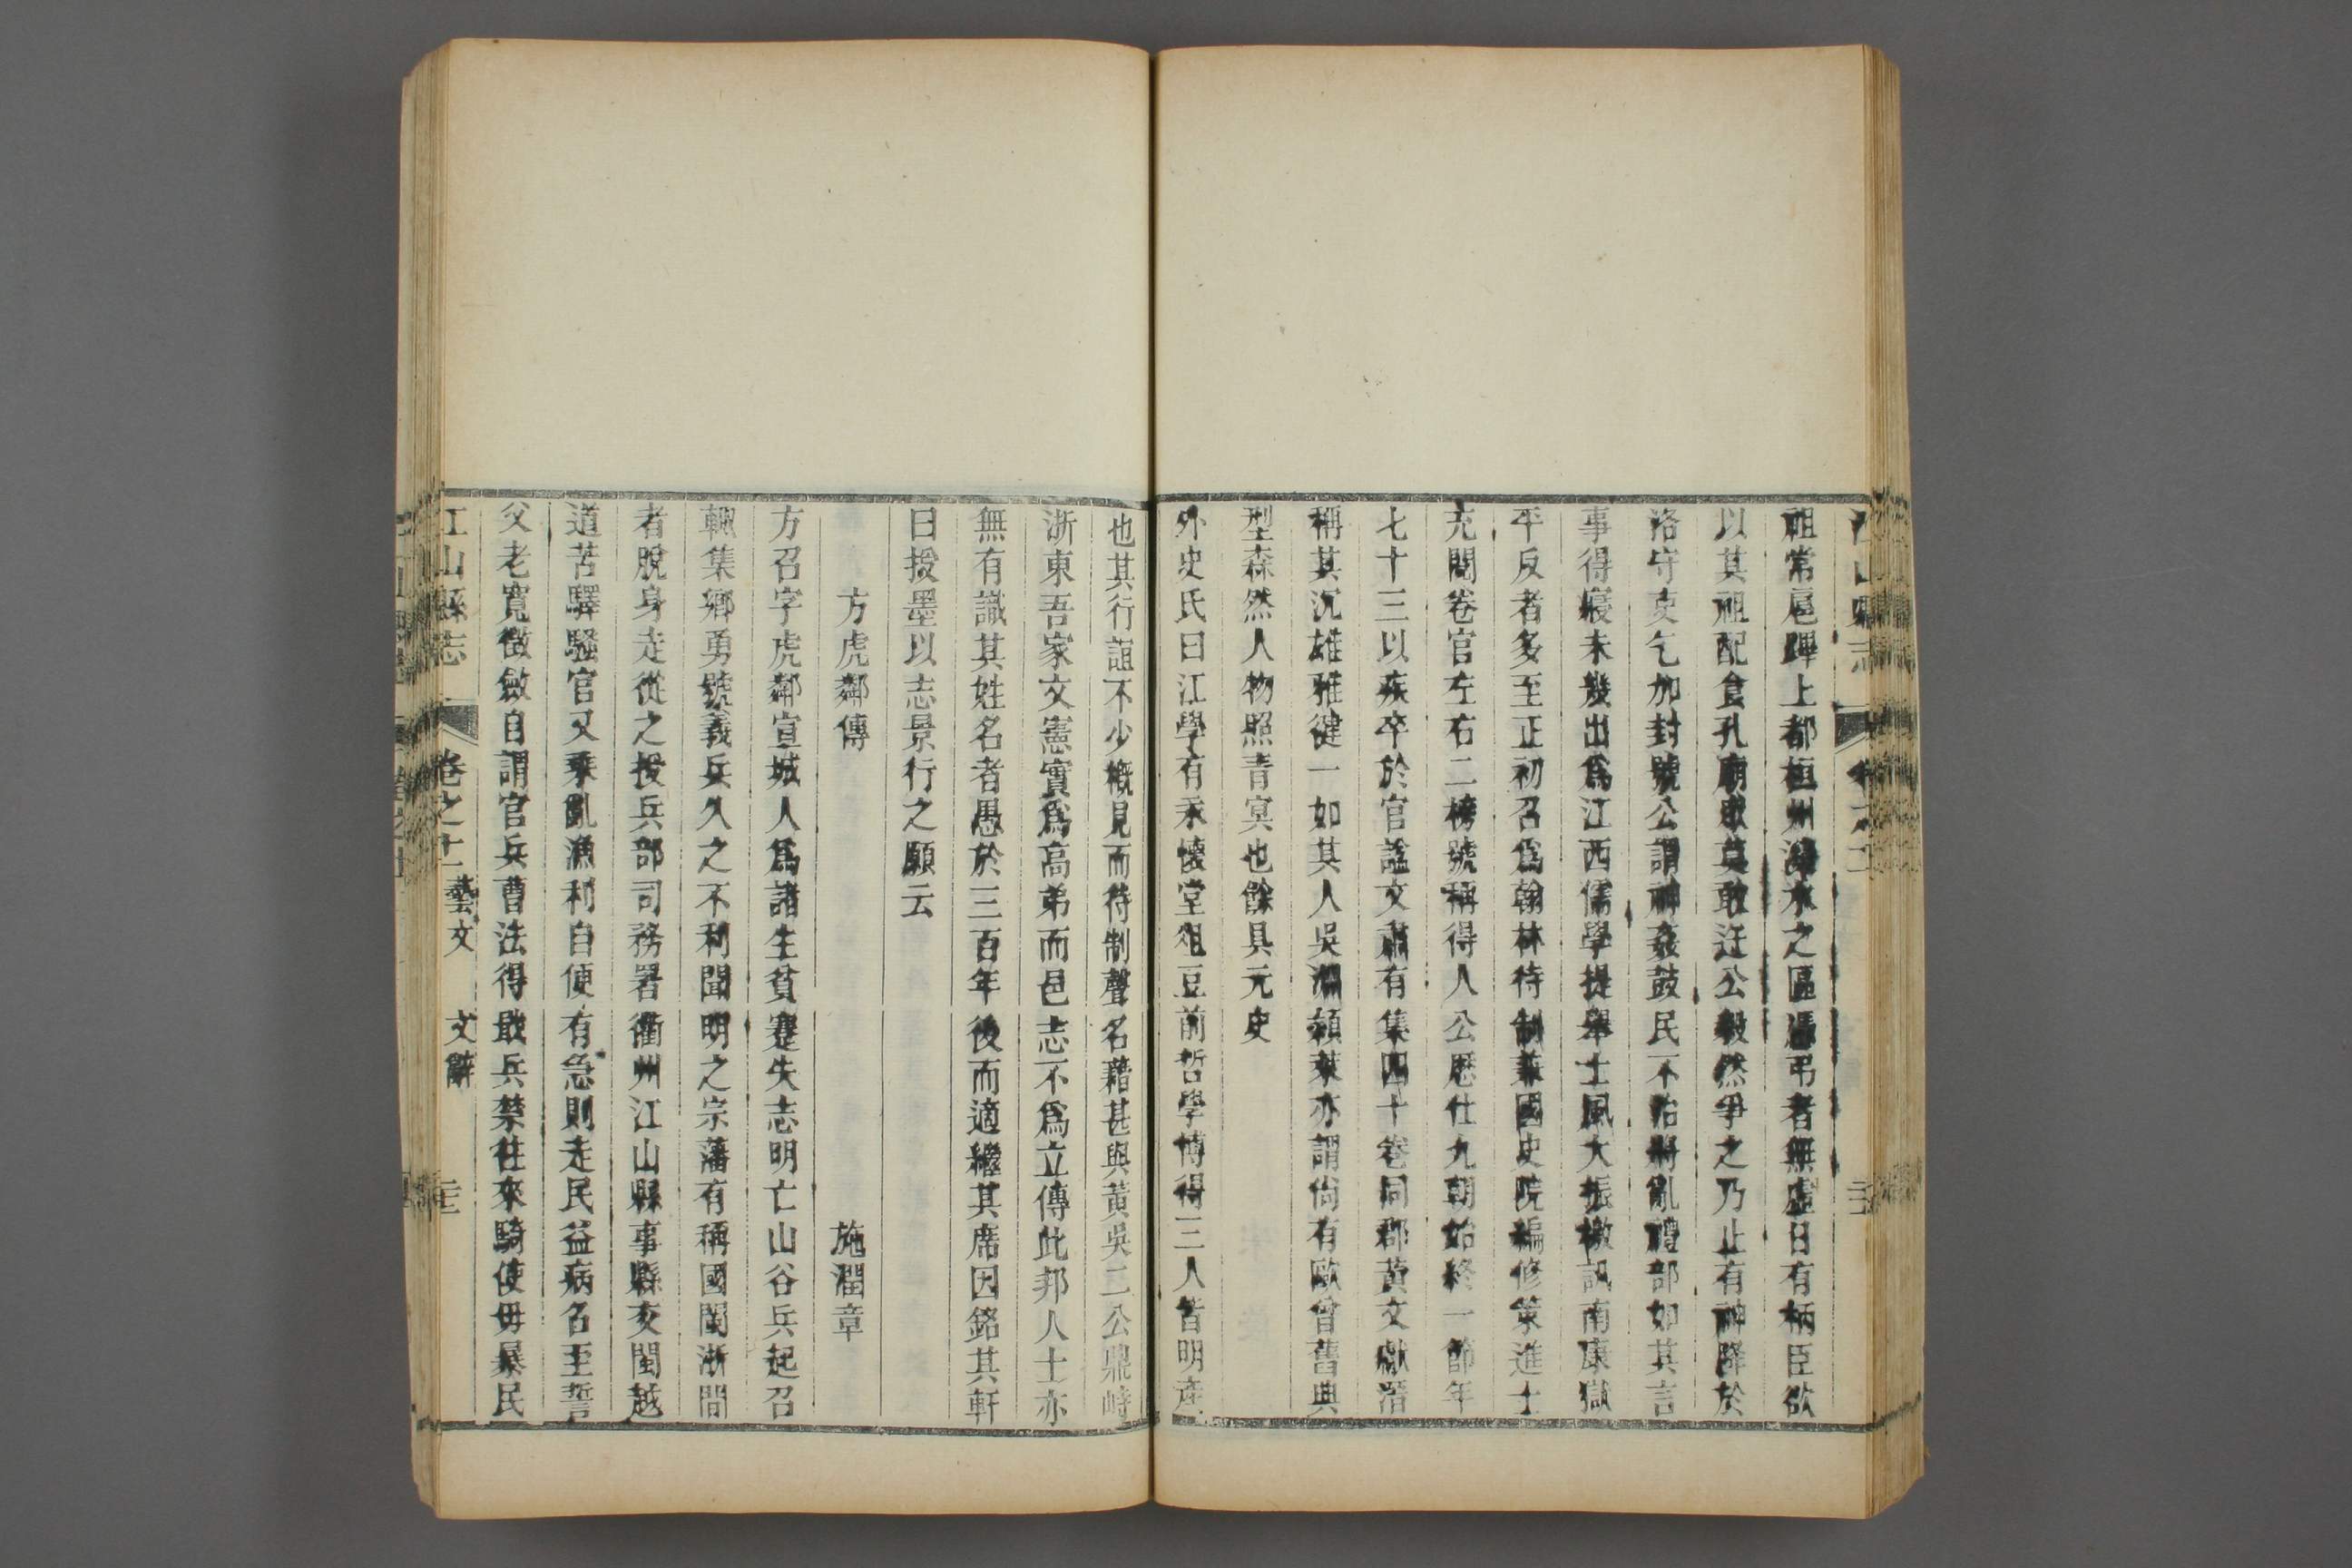 祖常扈蹕上都桓州灤水之區憑弔者無虛日有柄臣欲
以其祖配食孔廟衆莫敢迕公毅然爭之乃止有神降於
洛守吏乞加封號公謂神姦鼓民不治將亂禮部如其言
事得寢未幾出爲江西儒學提舉士風大振檄訊南康獄
平反者多至正初召爲翰林待制兼國史院編修策進士
充閱卷官左右二榜號稱得人公歷仕九朝始終一節年
七十三以疾卒於官諡文肅有集四十卷同郡黃文獻溍
稱其沉雄雅健一如其人吳淵穎萊亦謂尙有歐曾舊典
型森然人物照青冥也餘具元史
外史氏曰江學有永懷堂俎豆前哲學博得三人皆明產
也其行誼不少概見而待制聲名藉甚與黃吳二公鼎峙
浙東吾家文憲實爲高弟而邑志不爲立傳此邦人士亦
無有識其姓名者愚於三百年後而適繼其席因銘其軒
曰授墨以志景行之願云
方虎鄰傳 施潤章
方召字虎鄰宣城人爲諸生貧蹇失志明亡山谷兵起召
輒集鄉勇號義兵久之不利聞明之宗藩有稱國閩浙間
者脫身走從之授兵部司務署衢州江山縣事縣交閩越
道苦驛騷官又乘亂漁利自便有急則走民益病名至誓
父老寬徵斂自謂官兵曹法得戢兵禁往來騎使毋暴民
江山縣志 卷之十一 藝文 文辭